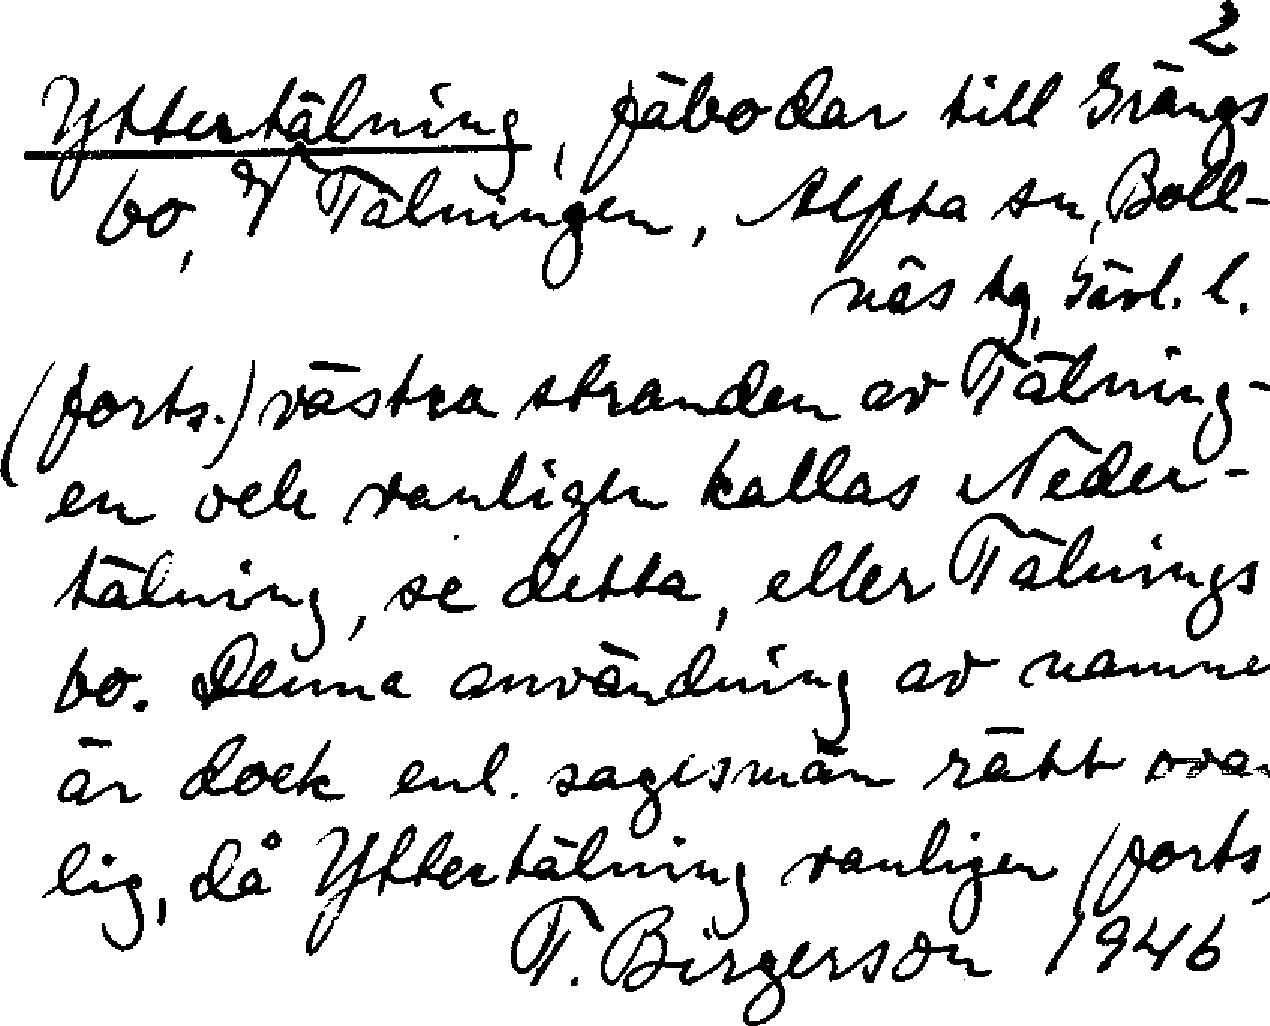 2
Yttertälning, fäbodar till Grängs
bo, V Tälningen, Alfta sn, Boll-
näs tg, Gävl. l.
(forts.) västra stranden av Tälning-
en och vanligen kallas Neder-
tälning, se detta, eller Tälnings
bo. Denna användning av namne
är dock enl. sagesmän rätt ovan
lig, då Yttertälning vanligen (forts.
T. Birgerson 1946